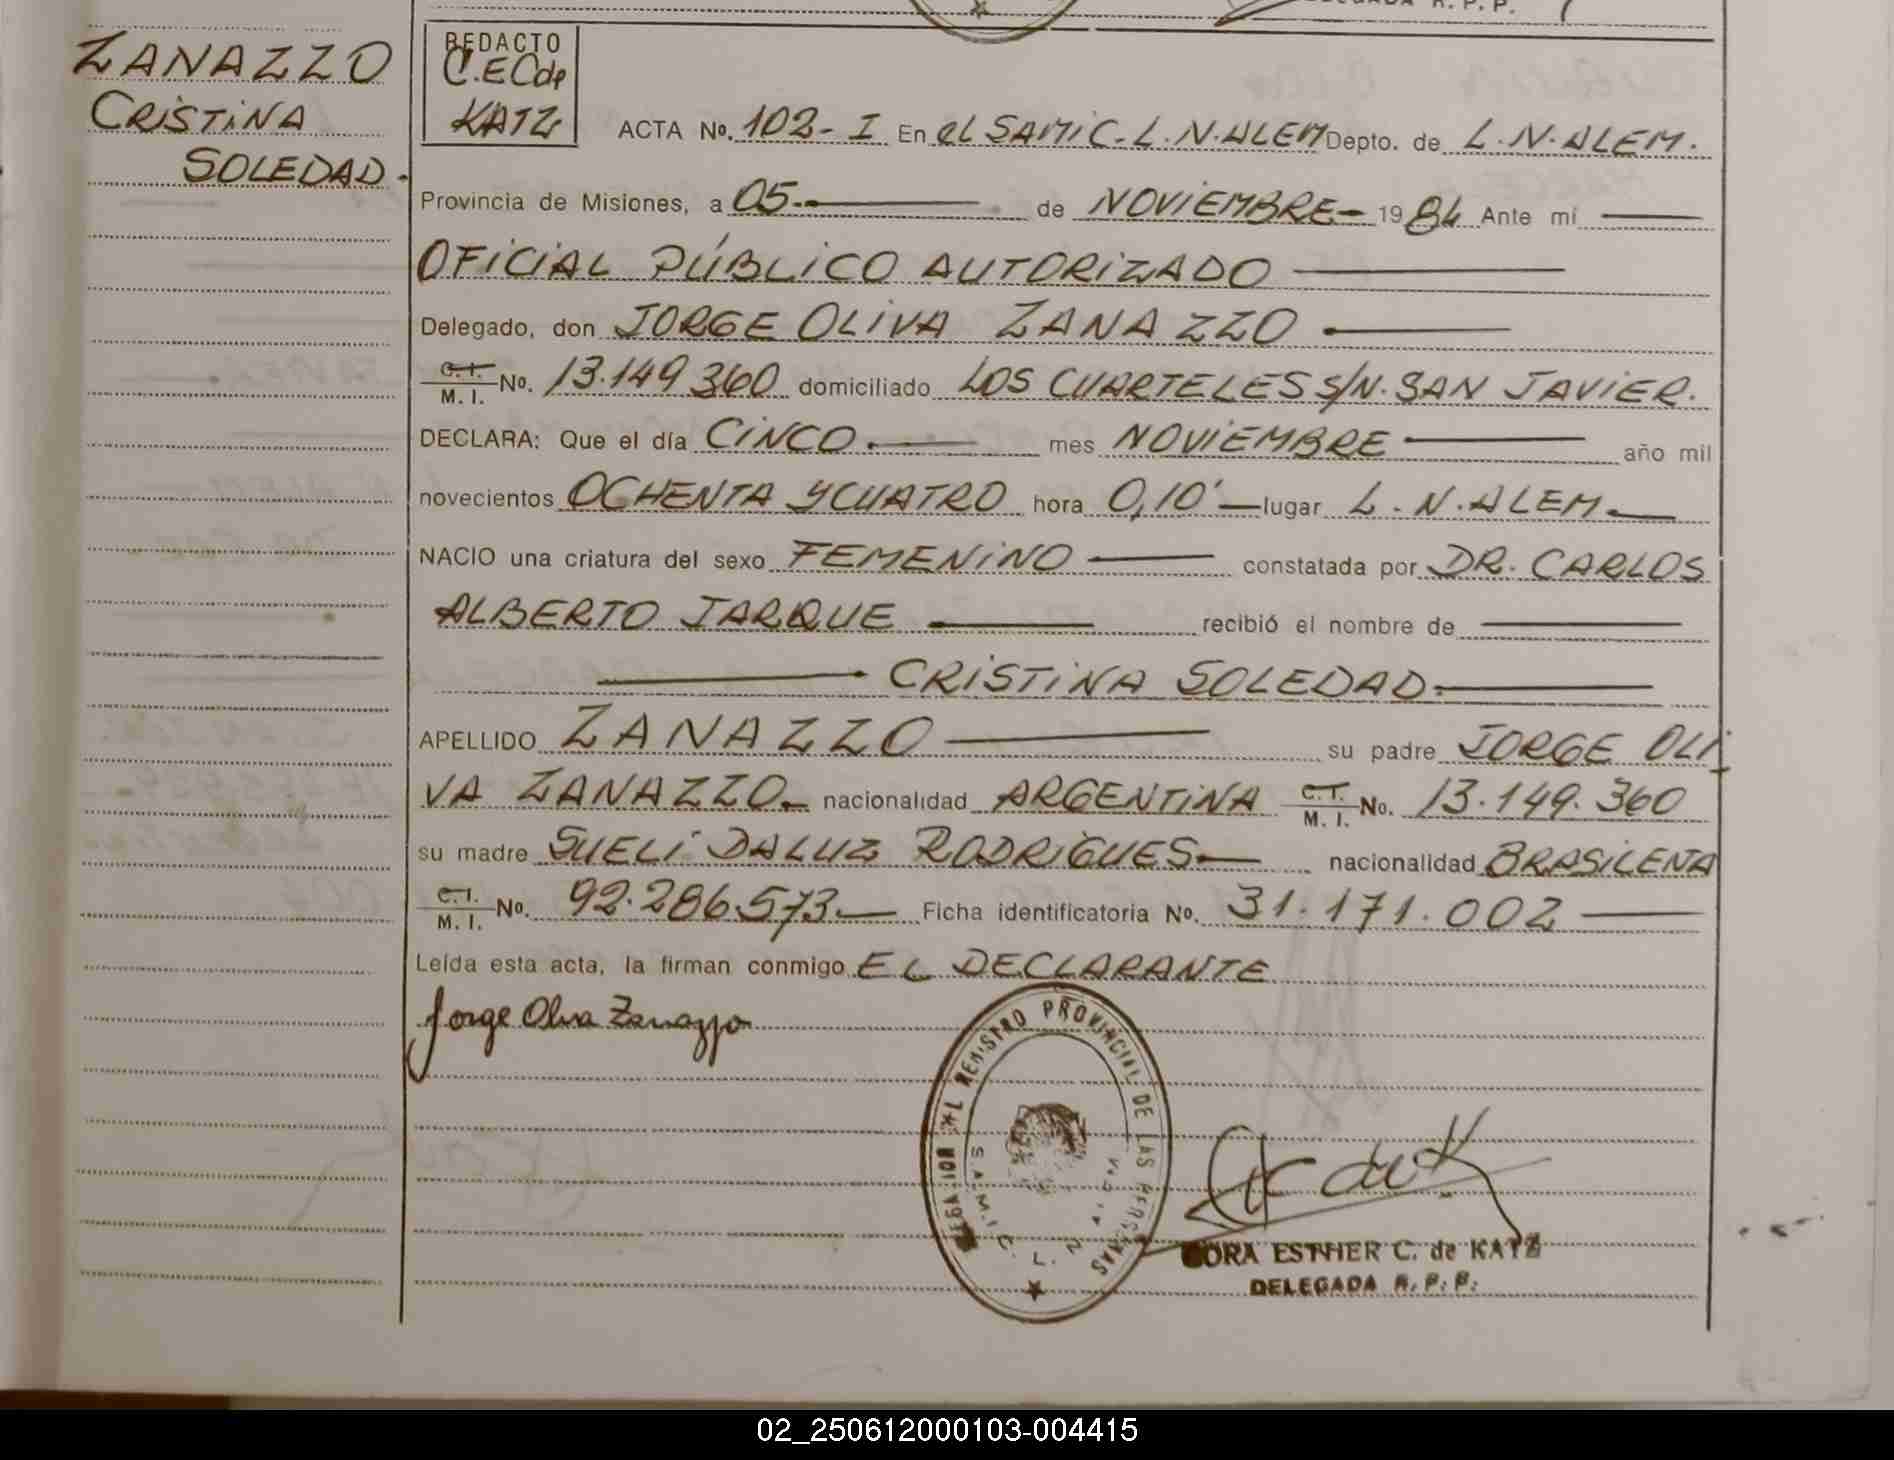 DELEGADA R. P. P.
ZANAZZO
CRISTINA
SOLEDAD.
REDACTO
C. E C de
KATZ
ACTA Nº. 102-I En el SAMIC. L. N. ALEM Depto. de L. N. ALEM.
Provincia de Misiones, a 05.— de NOVIEMBRE— 1984 Ante mí —
OFICIAL PÚBLICO AUTORIZADO —
Delegado, don JORGE OLIVA ZANAZZO —
C. I. / M. I. Nº. 13.149.360 domiciliado LOS CUARTELES S/N. SAN JAVIER.
DECLARA: Que el día CINCO.— mes NOVIEMBRE — año mil
novecientos OCHENTA Y CUATRO hora 0,10' — lugar L. N. ALEM.—
NACIO una criatura del sexo FEMENINO — constatada por DR. CARLOS
ALBERTO JARQUE — recibió el nombre de —
— CRISTINA SOLEDAD.—
APELLIDO ZANAZZO — su padre JORGE OLI
VA ZANAZZO.— nacionalidad ARGENTINA C. I. / M. I. Nº. 13.149.360
su madre SUELI DALUZ RODRIGUES.— nacionalidad BRASILENA
C. I. / M. I. Nº. 92.286.573.— Ficha identificatoria Nº. 31.171.002 —
Leída esta acta, la firman conmigo EL DECLARANTE
Jorge Oliva Zanazzo
REGISTRO PROVINCIAL DE LAS PERSONAS
S.A.M.I.C. L. N.
DORA ESTHER C. de KATZ
DELEGADA R. P. P.
02_250612000103-004415